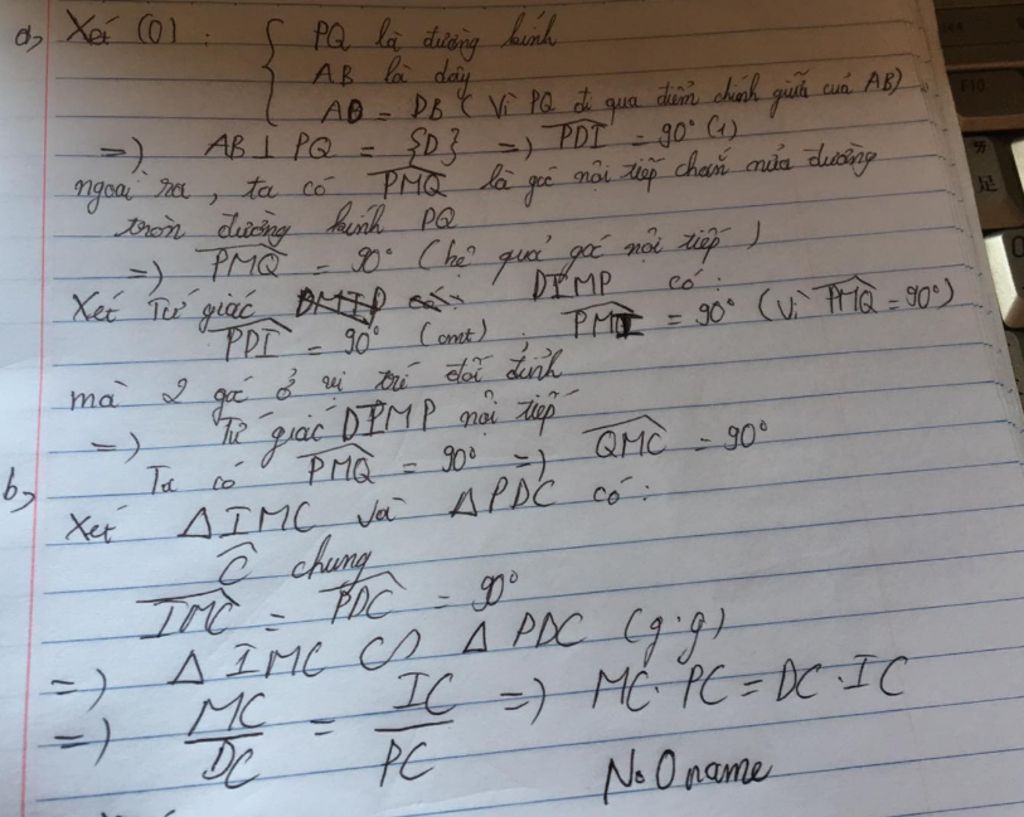 a, Xét (O) : { PQ là đường kính
AB là dây
AD = DB ( Vì PQ đi qua điểm chính giữa của AB)
=) AB ⊥ PQ = {D} =) \widehat{PDI} = 90° (1)
ngoài ra , ta có \widehat{PMQ} là góc nội tiếp chắn nửa đường
tròn đường kính PQ
=) \widehat{PMQ} = 90° (hệ quả góc nội tiếp )
Xét Tứ giác DIMP có :
\widehat{PDI} = 90° (cmt) ; \widehat{PMI} = 90° (Vì \widehat{PMQ} = 90°)
mà 2 góc ở vị trí đối đỉnh
=) Tứ giác DIMP nội tiếp
b, Ta có \widehat{PMQ} = 90° =) \widehat{QMC} = 90°
Xét Δ IMC và Δ PDC có :
\widehat{C} chung
\widehat{IMC} = \widehat{PDC} = 90°
=) Δ IMC ∽ Δ PDC (g.g)
=) \frac{MC}{DC} = \frac{IC}{PC} =) MC. PC = DC . IC
No Oname